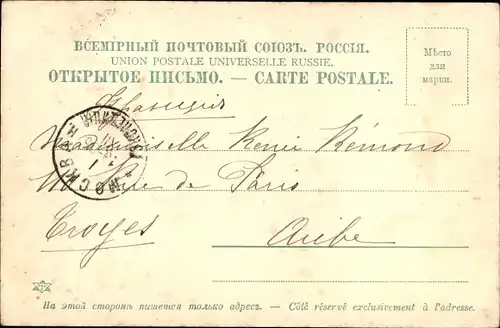 ВСЕМІРНЫЙ ПОЧТОВЫЙ СОЮЗЪ. РОССІЯ.
UNION POSTALE UNIVERSELLE RUSSIE.
ОТКРЫТОЕ ПИСЬМО. — CARTE POSTALE.
Мѣсто
для
марки.
Франція
МОСКВА
Mademoiselle Renée Rémond
Rue de Paris
Troyes
Aube
На этой сторонѣ пишется только адресъ. — Côté réservé exclusivement à l'adresse.